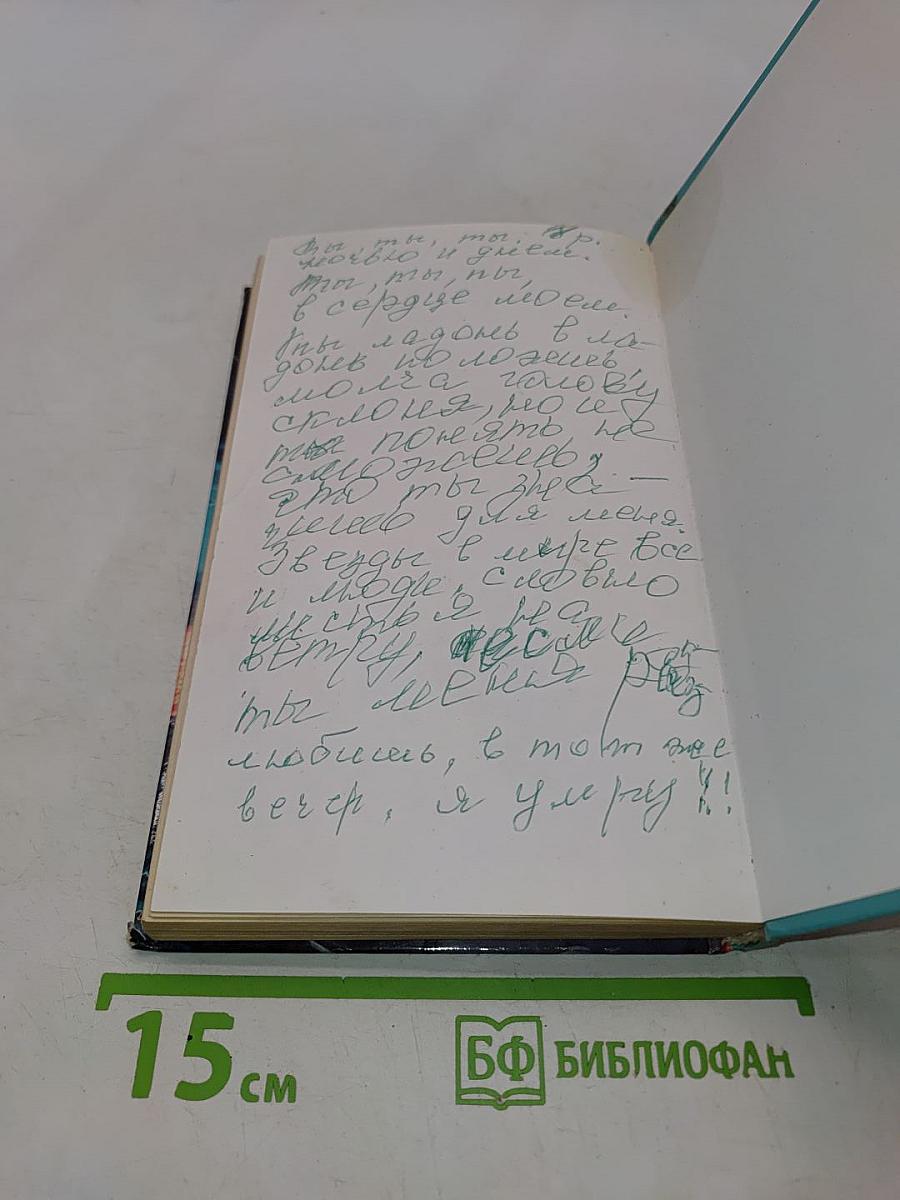 Ты, ты, ты. пр.
ночью и днем.
Ты, ты, ты,
в сердце моем.
Ты ладонь в ла-
донь положешь,
молча голову
склоня, но и
ты понять не
сможешь,
что ты зна-
чишь для меня.
Звезды в мире все
и люди, словно
листья на
ветру, если
ты меня
любишь, в тот же
вечер, я умру!!
15 см
БФ БИБЛИОФАН